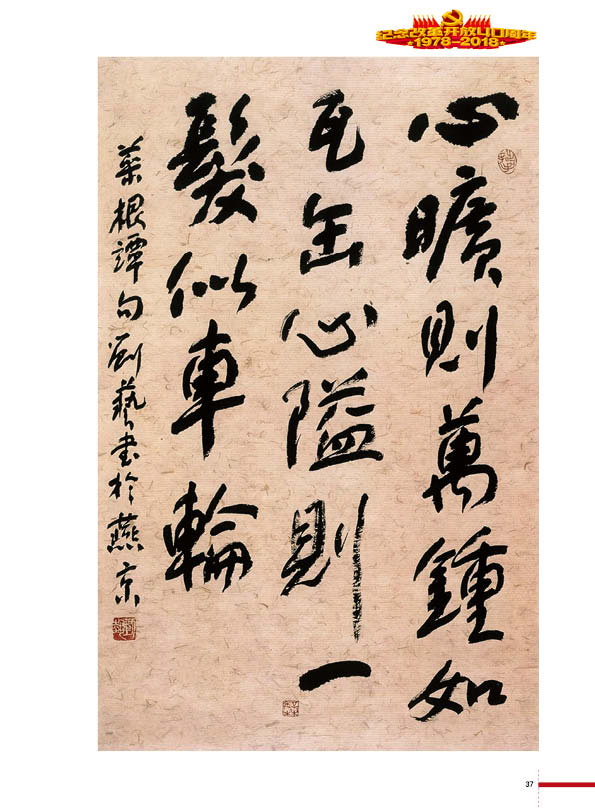 纪念改革开放40周年
1978-2018
心曠則萬鍾如
瓦缶心隘則一
髮似車輪
菜根譚句劉藝書於燕京
37